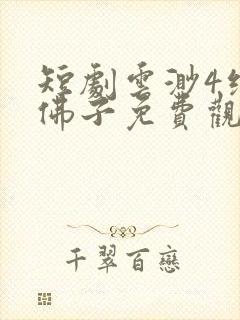 短劇雲渺4
佛子免費觀
千翠百戀